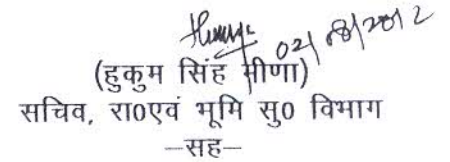 02/08/2012
(हुकुम सिंह मीणा)
सचिव, रा0एवं भूमि सु0 विभाग
–सह–